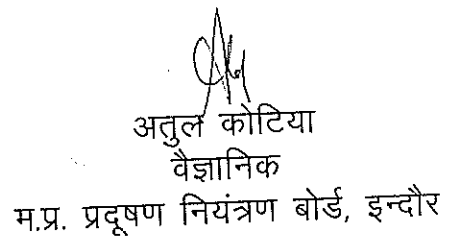 अतुल कोटिया
वैज्ञानिक
म.प्र. प्रदूषण नियंत्रण बोर्ड, इन्दौर